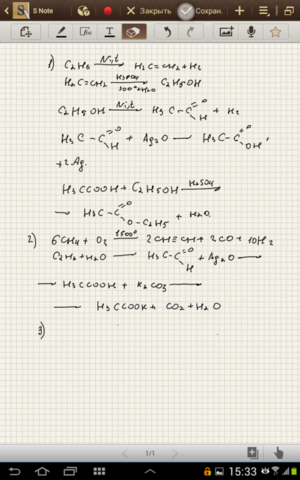 S Note
Закрыть
Сохран.
1) C2H6 —Ni,t→ H2C=CH2+H2
H2C=CH2 —H3PO4, 300°+H2O→ C2H5OH
C2H5OH —Ni,t→ H3C-C(=O)H + H2
H3C-C(=O)H + Ag2O — H3C-C(=O)OH,
+2Ag.
H3CCOOH + C2H5OH —H2SO4
→ H3C-C(=O)O-C2H5 + H2O.
2) 6CH4 + O2 —1500°→ 2CH≡CH + 2CO + 10H2
C2H2+H2O → H3C-C(=O)H + Ag2O →
→ H3CCOOH + K2CO3 →
→ H3CCOOK + CO2 + H2O
3)
1/1
15:33